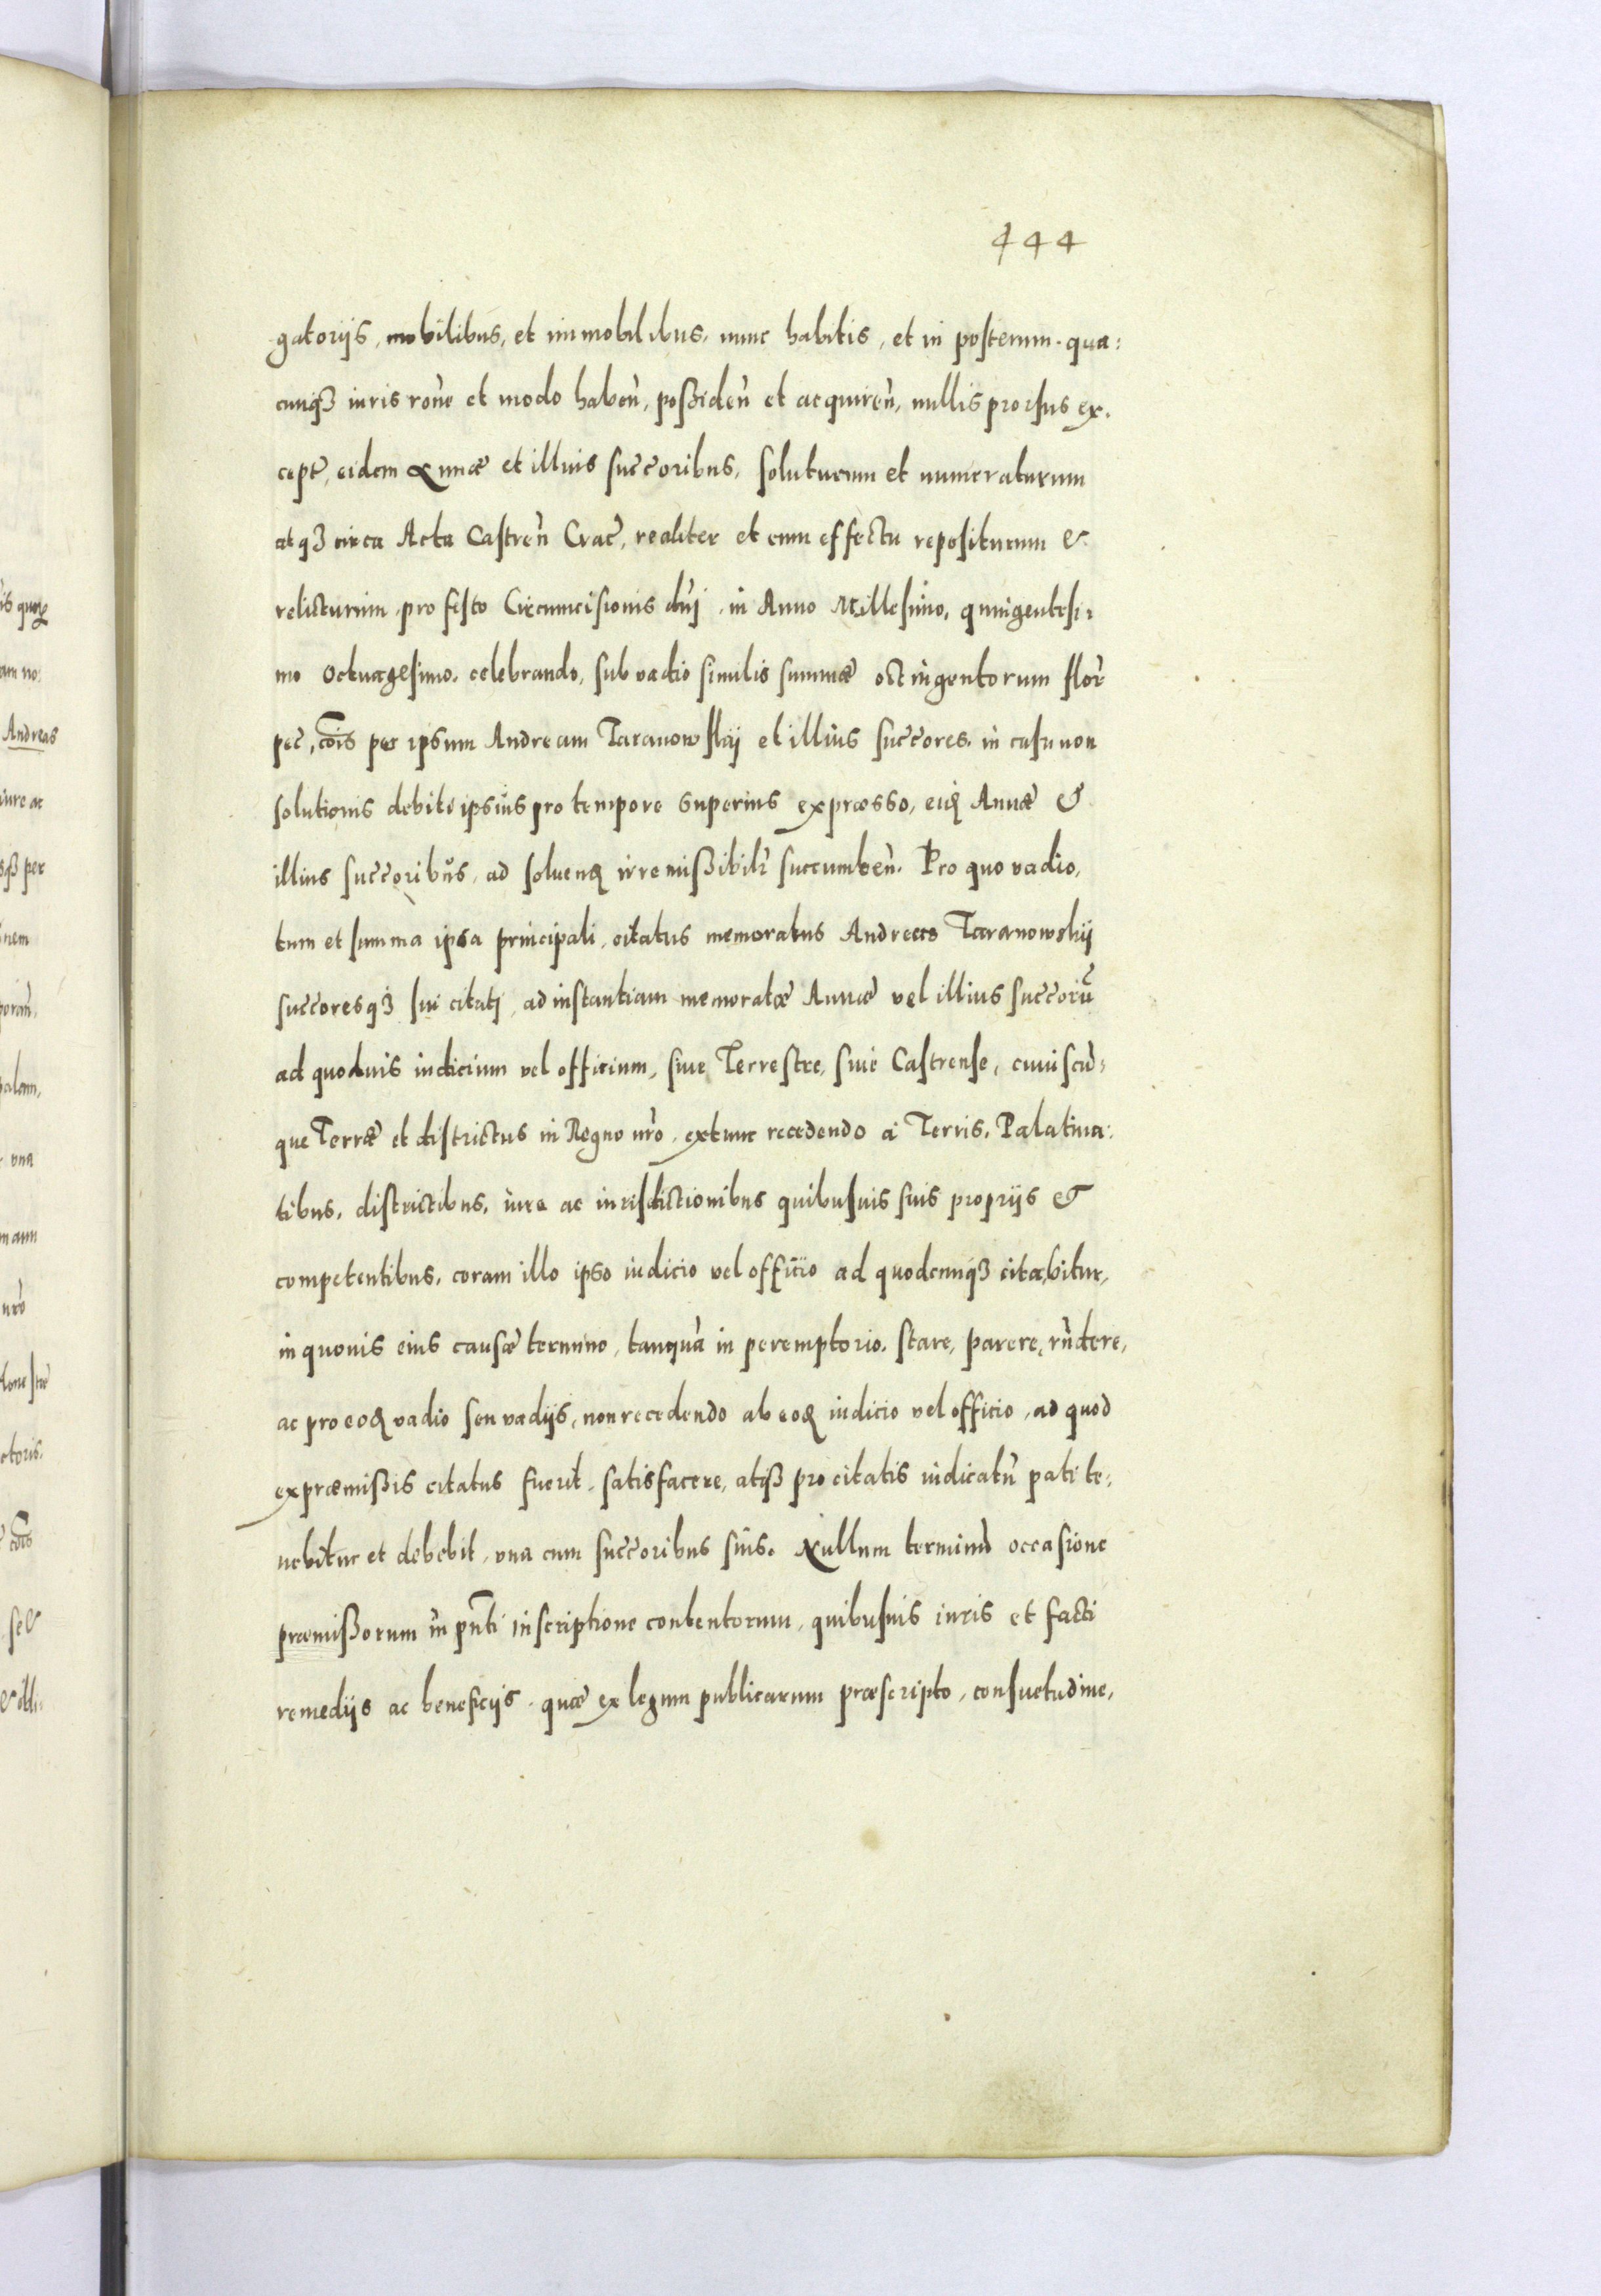 444
gatorijs, mobilibus, et immobilibus, nunc habitis, et in posterum. qua:
cunqȝ iuris rōne et modo habeñ, poßideñ et acquireñ, nullis prorsus ex.
cept̃, eidem Annæ et illius succ̃oribus, soluturum et numeraturum
atqȝ circa Acta Castreñ Crac̃, realiter et cum effectu repositurum &
relicturum, pro festo Circumcisionis dñj, in Anno Millesimo, quingentesi:
mo Octuagesimo. celebrando, sub vadio similis summæ octingentorum flor̃
pec̃, cōis per ipsum Andream Taranowskij et illius succ̃ores. in casu non
solutionis debiti ipsius pro tempore superius expræsso, eiđ Annæ &
illius succ̃oribus, ad soluenđ irremißibilr̃ succumbeñ. Pro quo vadio,
tum et summa ipsa principali, citatus memoratus Andreas Taranowskij
succ̃oresqȝ sui citati, ad instantiam memoratæ Annæ vel illius succ̃orū
ad quoduis iudicium vel officium, siue Terrestre, siue Castrense, cuiuscū:
que Terræ et districtus in Regno ñro, extunc recedendo à Terris, Palatina:
tibus, districtibus, iure ac iurisdictionibus quibusuis suis proprijs &
competentibus, coram illo ipso iudicio vel officio ad quodcunqȝ citabitur,
in quouis eius causæ termino, tanquā in peremptorio. stare, parere, rñdere,
ac pro eođ vadio seu vadijs, non recedendo ab eođ iudicio vel officio, ad quod
expræmißis citatus fuerit, satisfacere, atqȝ pro citatis iudicatū pati te:
nebitur et debebit, vna cum succ̃oribus suis. Nullum terminū occasione
præmißorum in pñti inscriptione contentorum, quibusuis iuris et facti
remedijs ac beneficijs, quæ ex legum publicarum præscripto, consuetudine,